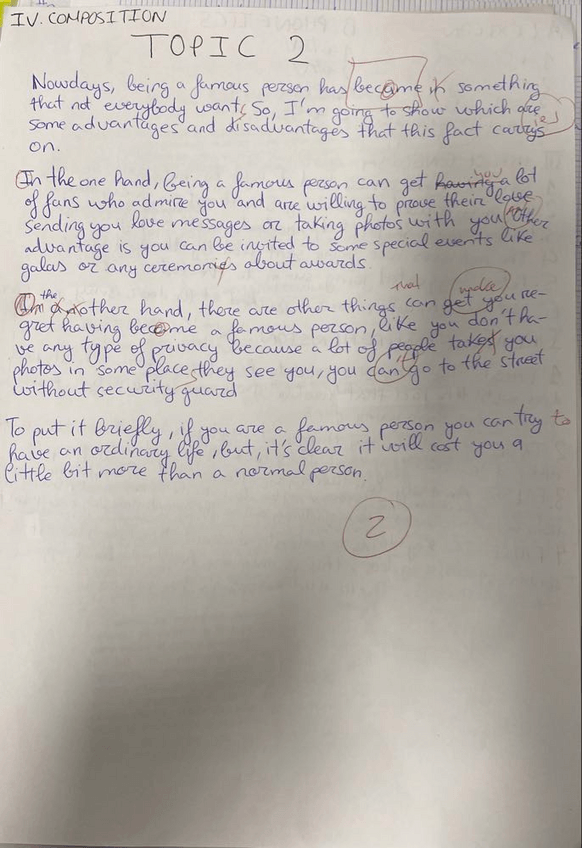 IV. COMPOSITION
TOPIC 2
Nowdays, being a famous person has became in something
that not everybody want. So, I'm going to show which are
some advantages and disadvantages that this fact carrys
on.
In the one hand, being a famous person can get having you a lot
of fans who admire you and are willing to prove their love
sending you love messages or taking photos with you. Other
advantage is you can be invited to some special events like
galas or any ceremonies about awards.
that make
In the another hand, there are other things can get you re-
gret having become a famous person, like you don't ha-
ve any type of privacy because a lot of people takes you
photos in some place they see you, you can't go to the street
without security guard
To put it briefly, if you are a famous person you can try to
have an ordinary life, but, it's clear it will cost you a
little bit more than a normal person.
2